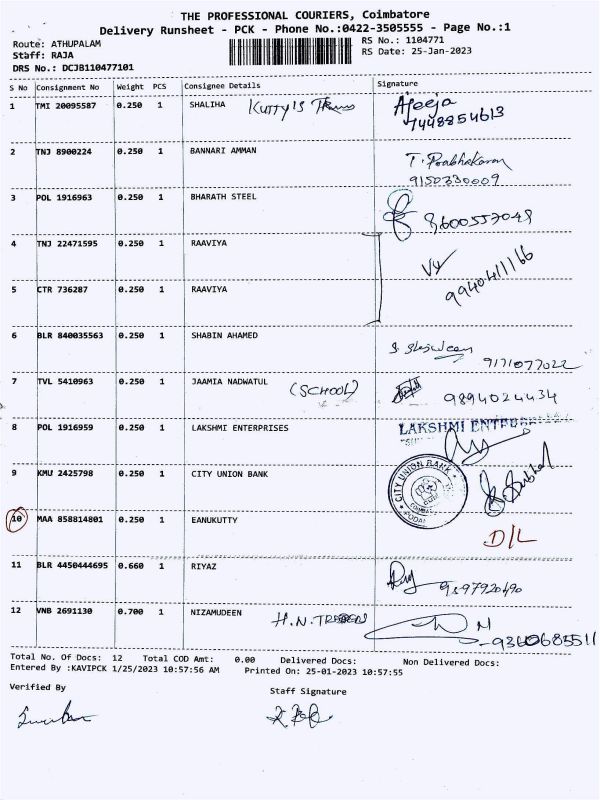 THE PROFESSIONAL COURIERS, Coimbatore
Delivery Runsheet - PCK - Phone No.:0422-3505555 - Page No.:1
Route: ATHUPALAM RS No.: 1104771
Staff: RAJA RS Date: 25-Jan-2023
DRS No.: DCJB110477101
S No Consignment No Weight PCS Consignee Details Signature
1 TMI 20095587 0.250 1 SHALIHA Ajeeja
7448854613
2 TNJ 8900224 0.250 1 BANNARI AMMAN T. Prabhakaran
9150330009
3 POL 1916963 0.250 1 BHARATH STEEL 8600557048
4 TNJ 22471595 0.250 1 RAAVIYA
9940411166
5 CTR 736287 0.250 1 RAAVIYA
6 BLR 840035563 0.250 1 SHABIN AHAMED
9171077022
7 TVL 5410963 0.250 1 JAAMIA NADWATUL (SCHOOL) 9894024434
8 POL 1916959 0.250 1 LAKSHMI ENTERPRISES LAKSHMI ENTERPRISES
9 KMU 2425798 0.250 1 CITY UNION BANK CITY UNION BANK
10 MAA 858814801 0.250 1 EANUKUTTY D/L
11 BLR 4450444695 0.660 1 RIYAZ 9597920490
12 VNB 2691130 0.700 1 NIZAMUDEEN H.N.
9360685511
Total No. Of Docs: 12 Total COD Amt: 0.00 Delivered Docs: Non Delivered Docs:
Entered By :KAVIPCK 1/25/2023 10:57:56 AM Printed On: 25-01-2023 10:57:55
Verified By Staff Signature